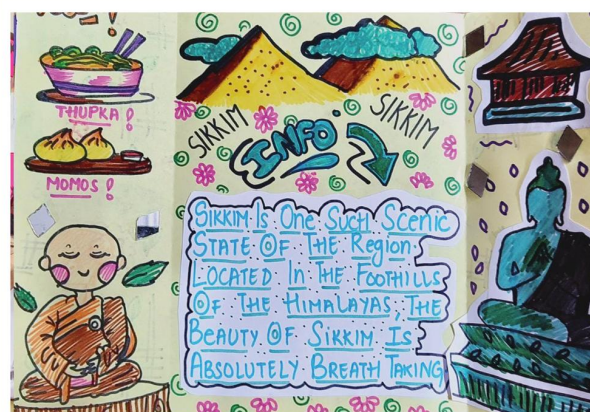 THUPKA!
MOMOS!
SIKKIM
SIKKIM
INFO
SIKKIM IS ONE SUCH SCENIC
STATE OF THE REGION
LOCATED IN THE FOOTHILLS
OF THE HIMALAYAS, THE
BEAUTY OF SIKKIM IS
ABSOLUTELY BREATH TAKING